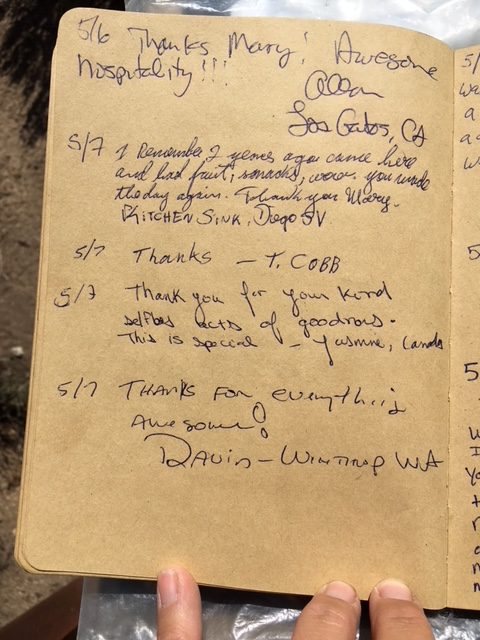 5/6 Thanks Mary! Awesome
Hospitality!!!
Allan
Los Gatos, CA
5/7 I Remember 2 years ago came here
and had fruit, snacks, wow. you made
the day again. Thank you Mary.
KITCHEN SINK, Diego SV
5/7 Thanks - T. COBB
5/7 Thank you for your kind
selfless acts of goodness.
This is special - Yasmine, Canada
5/7 THANKS FOR everything
Awesome!
DAVID - WINTHROP WA
5/
wa
a
a
w
5
5
W
I
yo
t
r